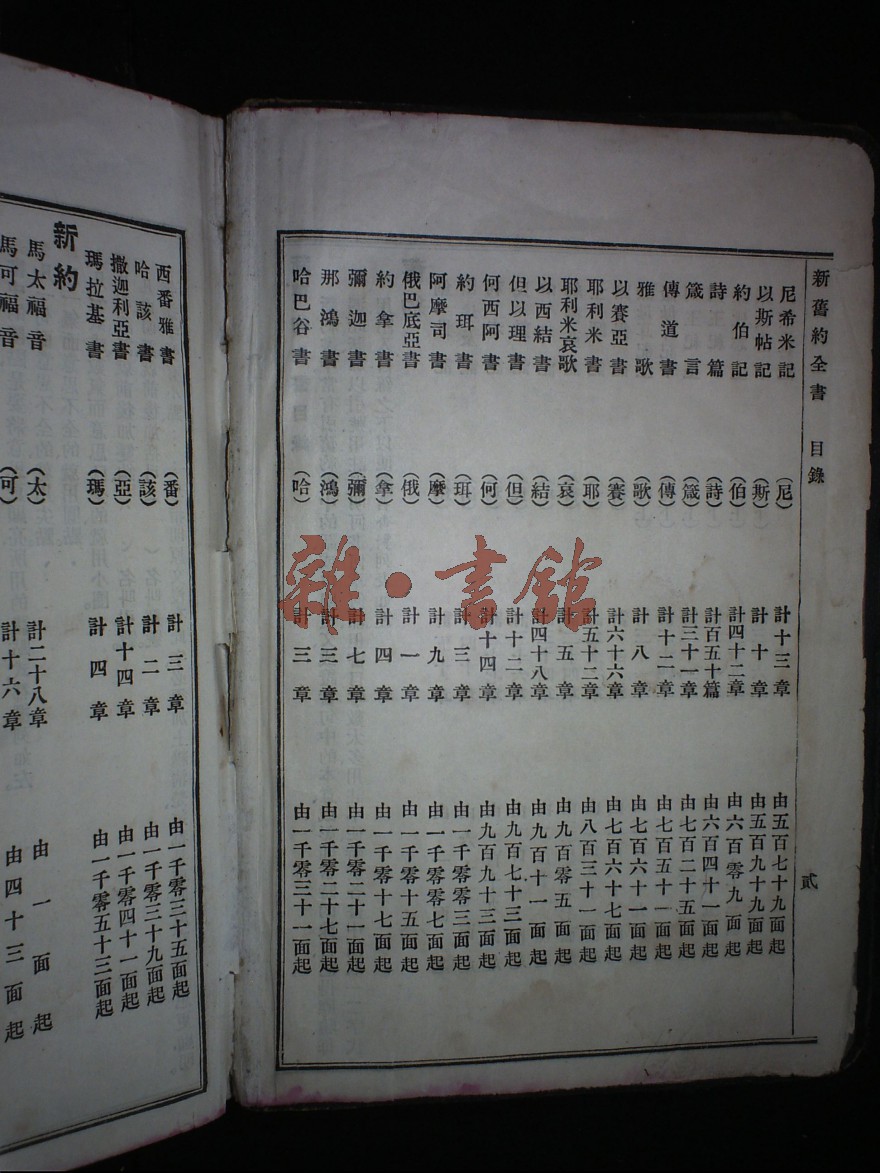 新舊約全書 目錄 貳
尼希米記 (尼) 計十三章 由五百七十九面起
以斯帖記 (斯) 計十章 由五百九十九面起
約伯記 (伯) 計四十二章 由六百零九面起
詩篇 (詩) 計百五十篇 由六百四十一面起
箴言 (箴) 計三十一章 由七百二十五面起
傳道書 (傳) 計十二章 由七百五十一面起
雅歌 (歌) 計八章 由七百六十一面起
以賽亞書 (賽) 計六十六章 由七百六十七面起
耶利米書 (耶) 計五十二章 由八百三十一面起
耶利米哀歌 (哀) 計五章 由九百零五面起
以西結書 (結) 計四十八章 由九百十一面起
但以理書 (但) 計十二章 由九百七十三面起
何西阿書 (何) 計十四章 由九百九十三面起
約珥書 (珥) 計三章 由一千零零三面起
阿摩司書 (摩) 計九章 由一千零零七面起
俄巴底亞書 (俄) 計一章 由一千零十五面起
約拿書 (拿) 計四章 由一千零十七面起
彌迦書 (彌) 計七章 由一千零二十一面起
那鴻書 (鴻) 計三章 由一千零二十七面起
哈巴谷書 (哈) 計三章 由一千零三十一面起
西番雅書 (番) 計三章 由一千零三十五面起
哈該書 (該) 計二章 由一千零三十九面起
撒迦利亞書 (亞) 計十四章 由一千零四十一面起
瑪拉基書 (瑪) 計四章 由一千零五十三面起
新約
馬太福音 (太) 計二十八章 由一面起
馬可福音 (可) 計十六章 由四十三面起
雜·書館